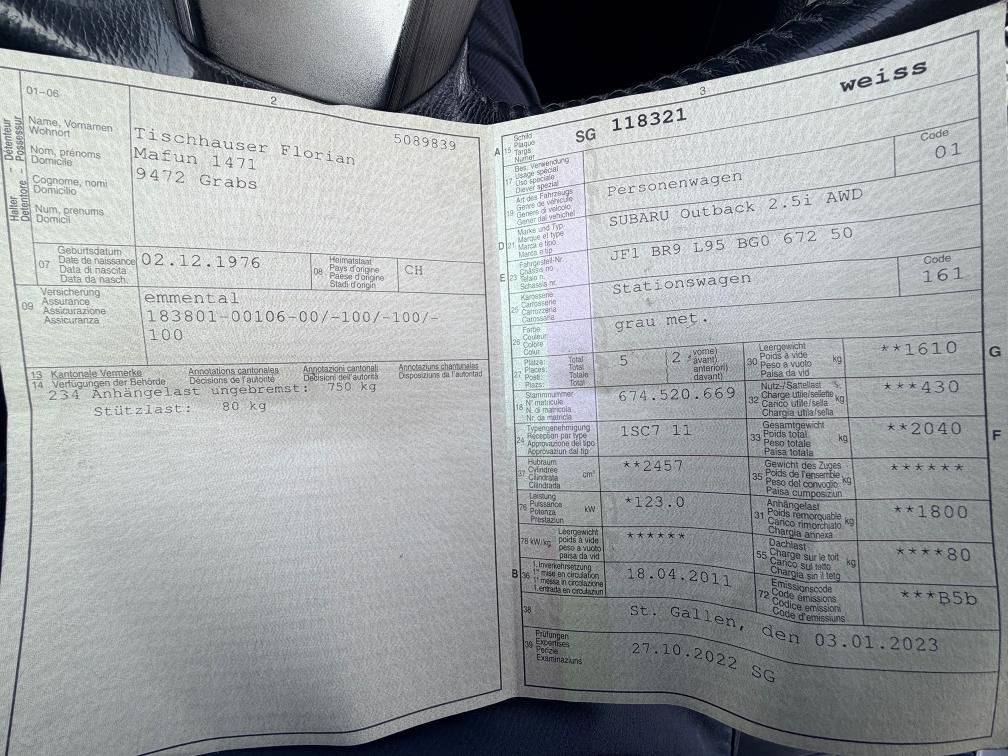 01-06
2
Halter - Détenteur
Detentore - Possessur
Name, Vornamen
Wohnort
Nom, prénoms
Domicile
Cognome, nomi
Domicilio
Num, prenums
Domicil
Tischhauser Florian
5089839
Mafun 1471
9472 Grabs
07
Geburtsdatum
Date de naissance
Data di nascita
Data da nasch.
02.12.1976
08
Heimatstaat
Pays d'origine
Paese d'origine
Stadi d'origin
CH
09
Versicherung
Assurance
Assicurazione
Assicuranza
emmental
183801-00106-00/-100/-100/-
100
13 Kantonale Vermerke Annotations cantonales Annotazioni cantonali Annotaziuns chantunalas
14 Verfügungen der Behörde Décisions de l'autorité Decisioni dell'autorità Disposiziuns da l'autoritad
234 Anhängelast ungebremst: 750 kg
Stützlast: 80 kg
3
weiss
A 15
Schild
Plaque
Targa
Numer
SG 118321
17
Bes. Verwendung
Usage spécial
Uso speciale
Diever spezial
Code
01
19
Art des Fahrzeugs
Genre de véhicule
Genere di veicolo
Gener dal vehichel
Personenwagen
D 21
Marke und Typ
Marque et type
Marca e tipo
Marca e tip
SUBARU Outback 2.5i AWD
E 23
Fahrgestell-Nr.
Châssis no
Telaio n.
Schassis nr.
JF1 BR9 L95 BG0 672 50
25
Karosserie
Carrosserie
Carrozzeria
Carossaria
Stationswagen
Code
161
26
Farbe
Couleur
Colore
Colur
grau met.
27
Plätze: Total
Places: Total
Posti: Totale
Plazs: Total
5
(2 vorne)
avant)
anteriori)
davant)
30
Leergewicht
Poids à vide
Peso a vuoto
Paisa da vid
kg
**1610
G
18
Stammnummer
N° matricule
N. di matricola
Nr. da matricla
674.520.669
32
Nutz-/Sattellast
Charge utile/sellette
Carico utile/sella
Chargia utila/sella
kg
***430
24
Typengenehmigung
Réception par type
Approvazione del tipo
Approvaziun dal tip
1SC7 11
33
Gesamtgewicht
Poids total
Peso totale
Paisa totala
kg
**2040
F
37
Hubraum
Cylindrée
Cilindrata
Cilindrada
cm³
**2457
35
Gewicht des Zuges
Poids de l'ensemble
Peso del convoglio
Paisa cumposiziun
kg
******
76
Leistung
Puissance
Potenza
Prestaziun
kW
*123.0
31
Anhängelast
Poids remorquable
Carico rimorchiato
Chargia annexa
kg
**1800
78 kW/kg
Leergewicht
poids à vide
peso a vuoto
paisa da vid
******
55
Dachlast
Charge sur le toit
Carico sul tetto
Chargia sin il tetg
kg
****80
B 36
1. Inverkehrsetzung
1re mise en circulation
1a messa in circolazione
1. entrada en circulaziun
18.04.2011
72
Emissionscode
Code émissions
Codice emissioni
Code d'emissiuns
***B5b
38
St. Gallen, den 03.01.2023
39
Prüfungen
Expertises
Perizie
Examinaziuns
27.10.2022 SG